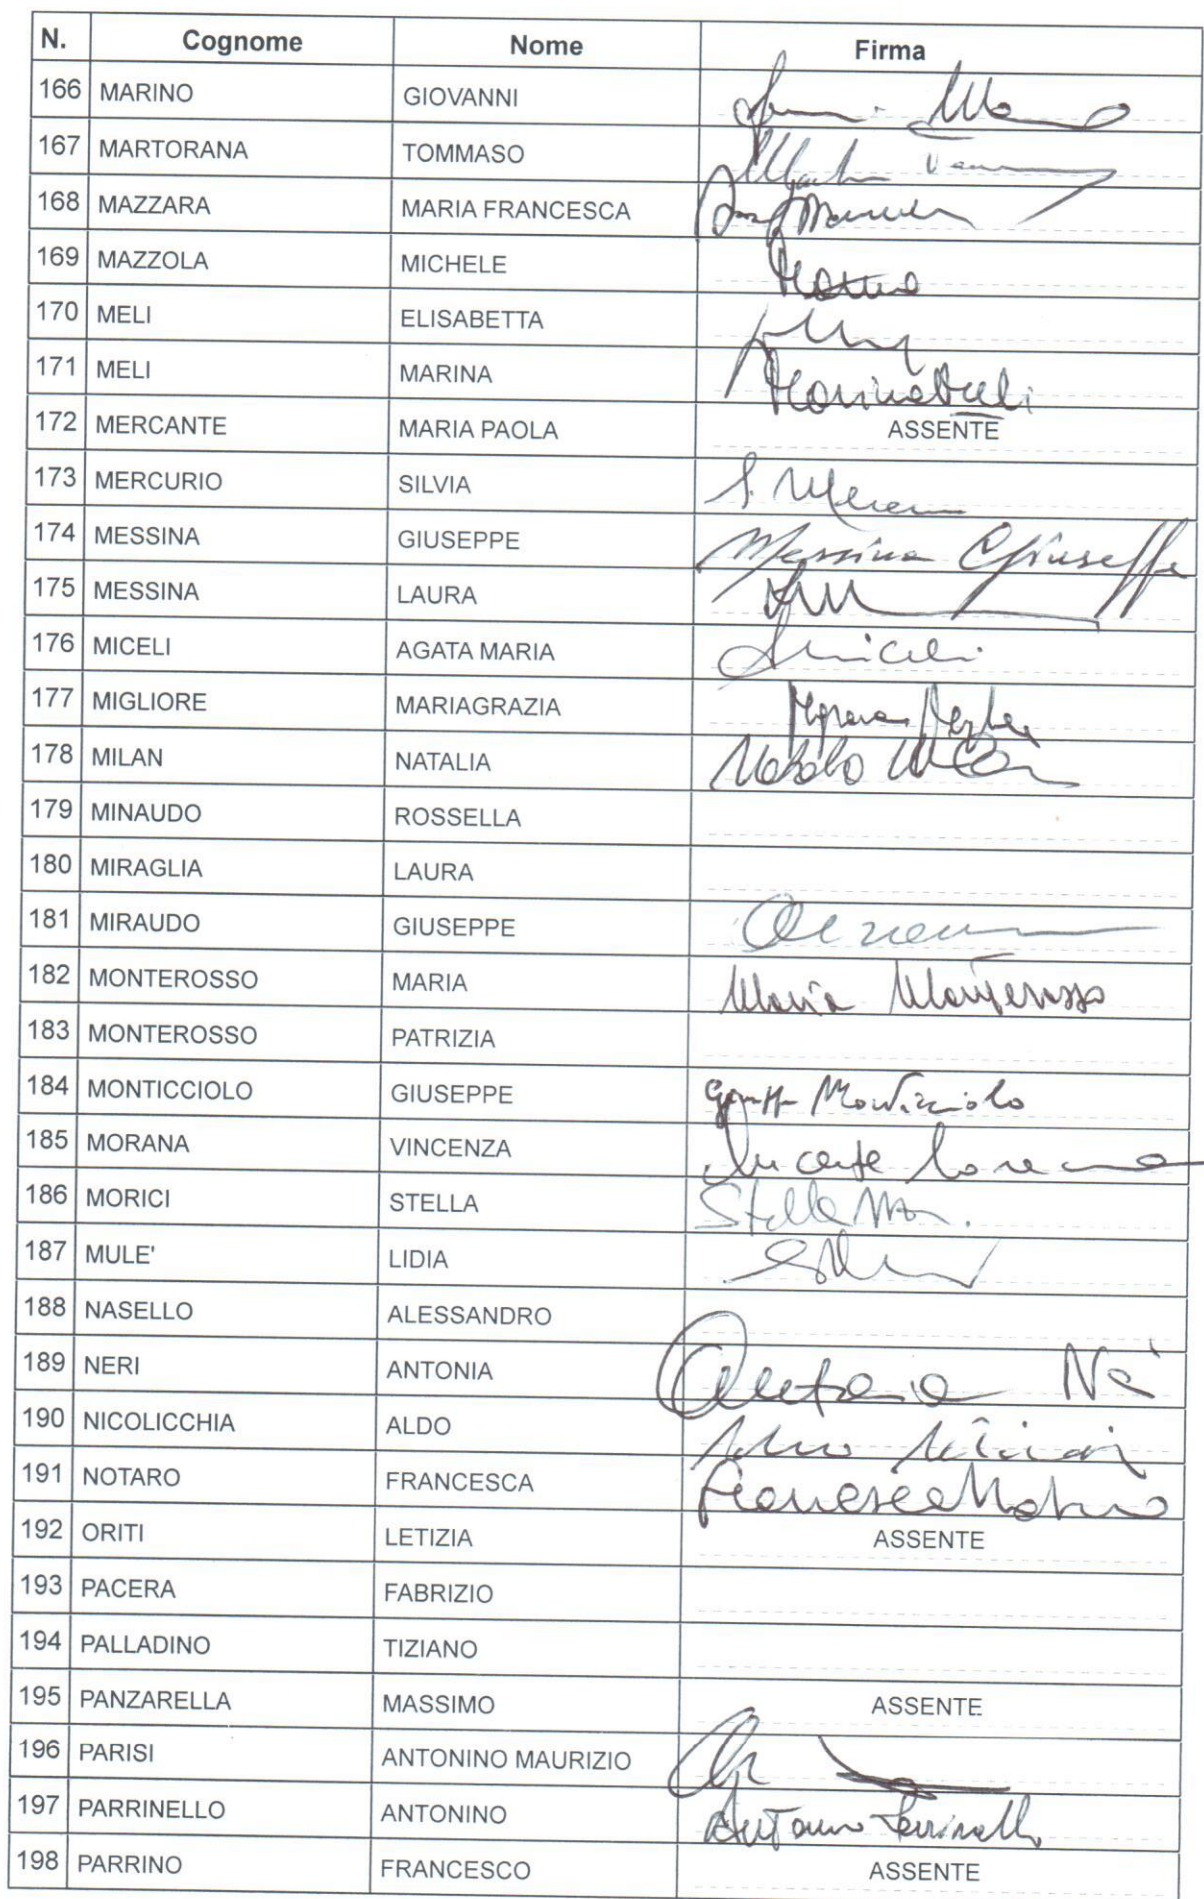 N. Cognome Nome Firma
166 MARINO GIOVANNI
167 MARTORANA TOMMASO
168 MAZZARA MARIA FRANCESCA
169 MAZZOLA MICHELE
170 MELI ELISABETTA
171 MELI MARINA Marina Meli
172 MERCANTE MARIA PAOLA ASSENTE
173 MERCURIO SILVIA
174 MESSINA GIUSEPPE Messina Giuseppe
175 MESSINA LAURA
176 MICELI AGATA MARIA
177 MIGLIORE MARIAGRAZIA
178 MILAN NATALIA
179 MINAUDO ROSSELLA
180 MIRAGLIA LAURA
181 MIRAUDO GIUSEPPE
182 MONTEROSSO MARIA Maria Monterosso
183 MONTEROSSO PATRIZIA
184 MONTICCIOLO GIUSEPPE Monticciolo
185 MORANA VINCENZA
186 MORICI STELLA Stella
187 MULE' LIDIA
188 NASELLO ALESSANDRO
189 NERI ANTONIA
190 NICOLICCHIA ALDO
191 NOTARO FRANCESCA Francesca Notaro
192 ORITI LETIZIA ASSENTE
193 PACERA FABRIZIO
194 PALLADINO TIZIANO
195 PANZARELLA MASSIMO ASSENTE
196 PARISI ANTONINO MAURIZIO
197 PARRINELLO ANTONINO Antonino Parrinello
198 PARRINO FRANCESCO ASSENTE